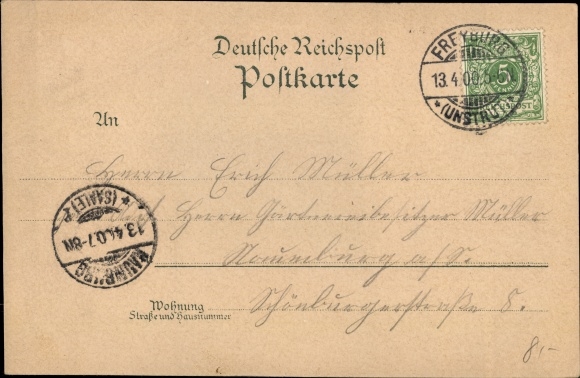 Deutsche Reichspost
Postkarte
FREYBURG
13.4.00.
*(UNSTRUT)*
5
An
Herrn Erich Müller
Herrn Gärtnereibesitzer Müller
Naumburg a/S.
Schönburgerstraße 8.
Wohnung
Straße und Hausnummer
NAUMBURG
13.4.00.7-8N
*(SAALE)*
8,-